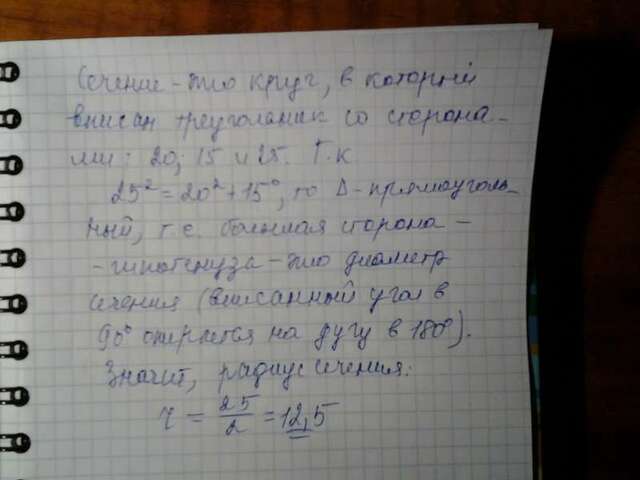 Сечение - это круг, в который
вписан треугольник со сторона-
ми: 20; 15 и 25. Т.к
25² = 20² + 15², то Δ-прямоуголь-
ный, т.е. большая сторона -
- гипотенуза - это диаметр
сечения (вписанный угол в
90° опирается на дугу в 180°).
Значит, радиус сечения:
r = 25/2 = 12,5